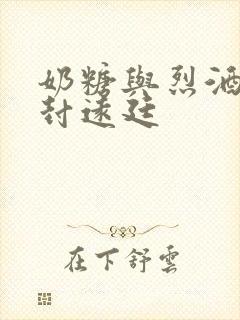 奶糖與烈酒
封遠廷
在下舒雲